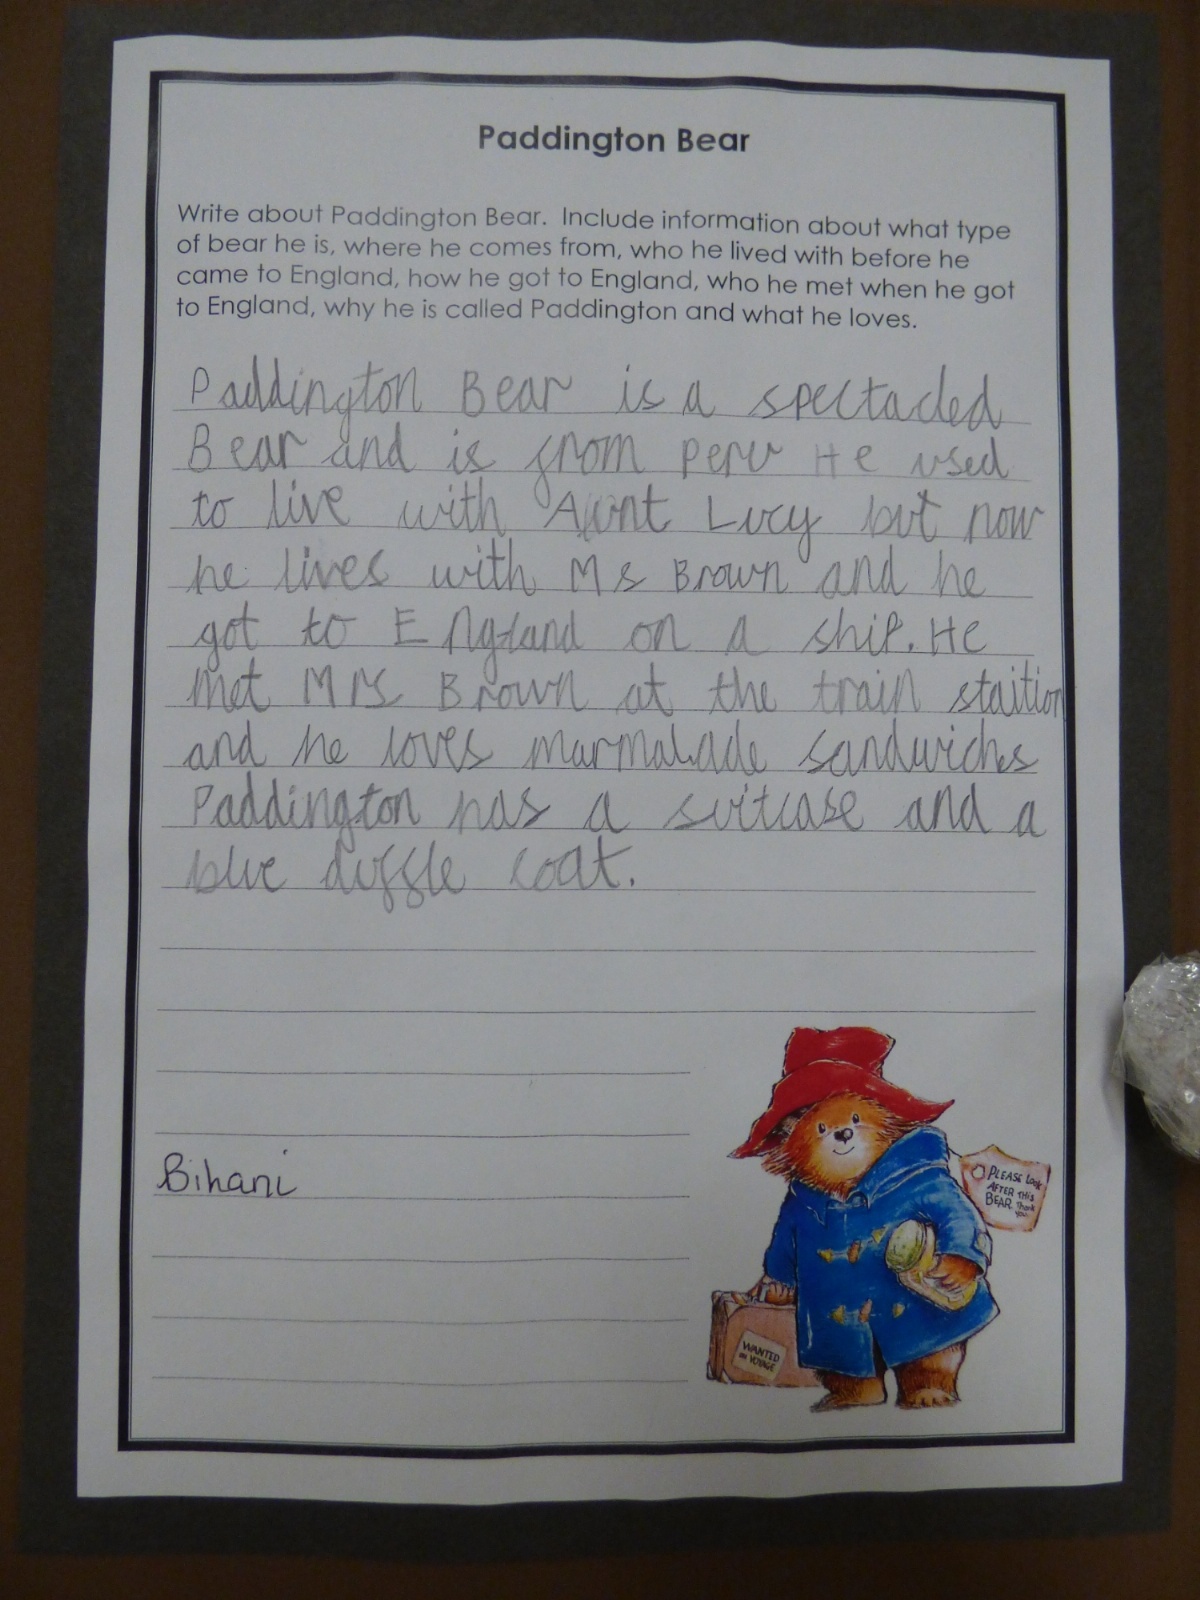 Paddington Bear
Write about Paddington Bear. Include information about what type
of bear he is, where he comes from, who he lived with before he
came to England, how he got to England, who he met when he got
to England, why he is called Paddington and what he loves.
Paddington Bear is a spectacled
Bear and is from peru He used
to live with Aunt Lucy but now
he lives with Ms Brown and he
got to England on a ship. He
met Mrs Brown at the train staition
and he loves marmalade sandwichs
Paddington has a suitcase and a
blue duffle coat.
Bihani
PLEASE Look
AFTER THIS
BEAR Thank
You
WANTED
ON VOYAGE